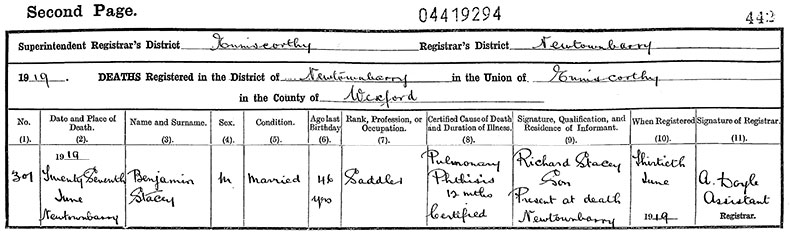 Second Page. 04419294 442
Superintendent Registrar's District Enniscorthy Registrar's District Newtownbarry
1919. DEATHS Registered in the District of Newtownbarry in the Union of Enniscorthy
in the County of Wexford
No. (1). Date and Place of Death. (2). Name and Surname. (3). Sex. (4). Condition. (5). Age last Birthday (6). Rank, Profession, or Occupation. (7). Certified Cause of Death and Duration of Illness. (8). Signature, Qualification, and Residence of Informant. (9). When Registered (10). Signature of Registrar. (11).
301
1919
Twenty Seventh
June
Newtownbarry
Benjamin
Stacey
M
Married
46
yrs
Saddler
Pulmonary
Phthisis
12 mths
Certified
Richard Stacey
Son
Present at death
Newtownbarry
Thirtieth
June
1919
A. Doyle
Assistant
Registrar.